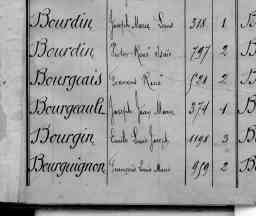 Bourdin Joseph Marie Louis 318 1
Bourdin Victor René 797 2
Bourgeais René 521 2
Bourgeault Joseph Jean Marie 374 1
Bourgin Emile Louis Joseph 1198 3
Bourguignon François Louis Marie 959 2